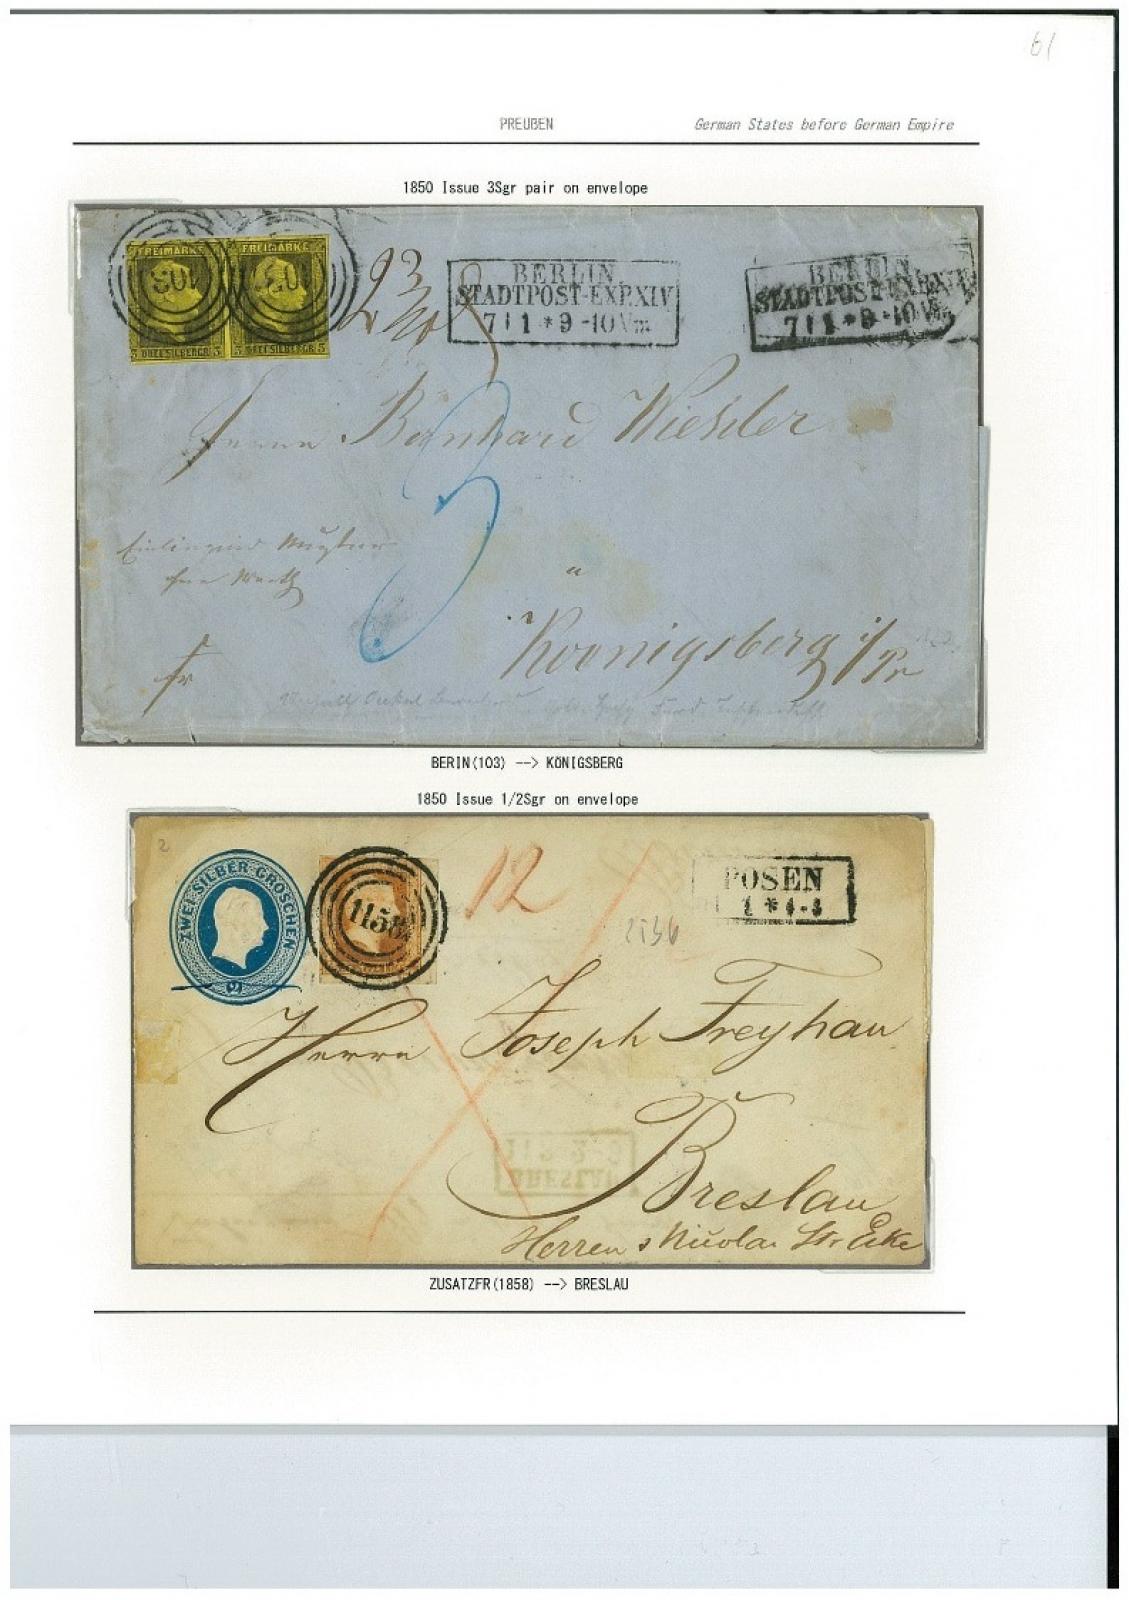 61
PREUßEN German States before German Empire
1850 Issue 3Sgr pair on envelope
FREIMARKE FREIMARKE
103 103
3 DREI SILBERGR 3 3 DREI SILBERGR 3
BERLIN
STADTPOST-EXP.XIV
7 1 * 9-10 Vm
BERLIN
STADTPOST-EXP.XIV
7 1 * 9-10 Vm
Herrn Bernhard Wiessler
3
fr
Koenigsberg i/Pr
BERIN(103) --> KÖNIGSBERG
1850 Issue 1/2Sgr on envelope
2
ZWEI SILBER GROSCHEN
2
1158
12
POSEN
1 * 4-5
Herrn Joseph Freyhau
Breslau
BRESLAU
Herren Nicolai Str Ecke
ZUSATZFR(1858) --> BRESLAU